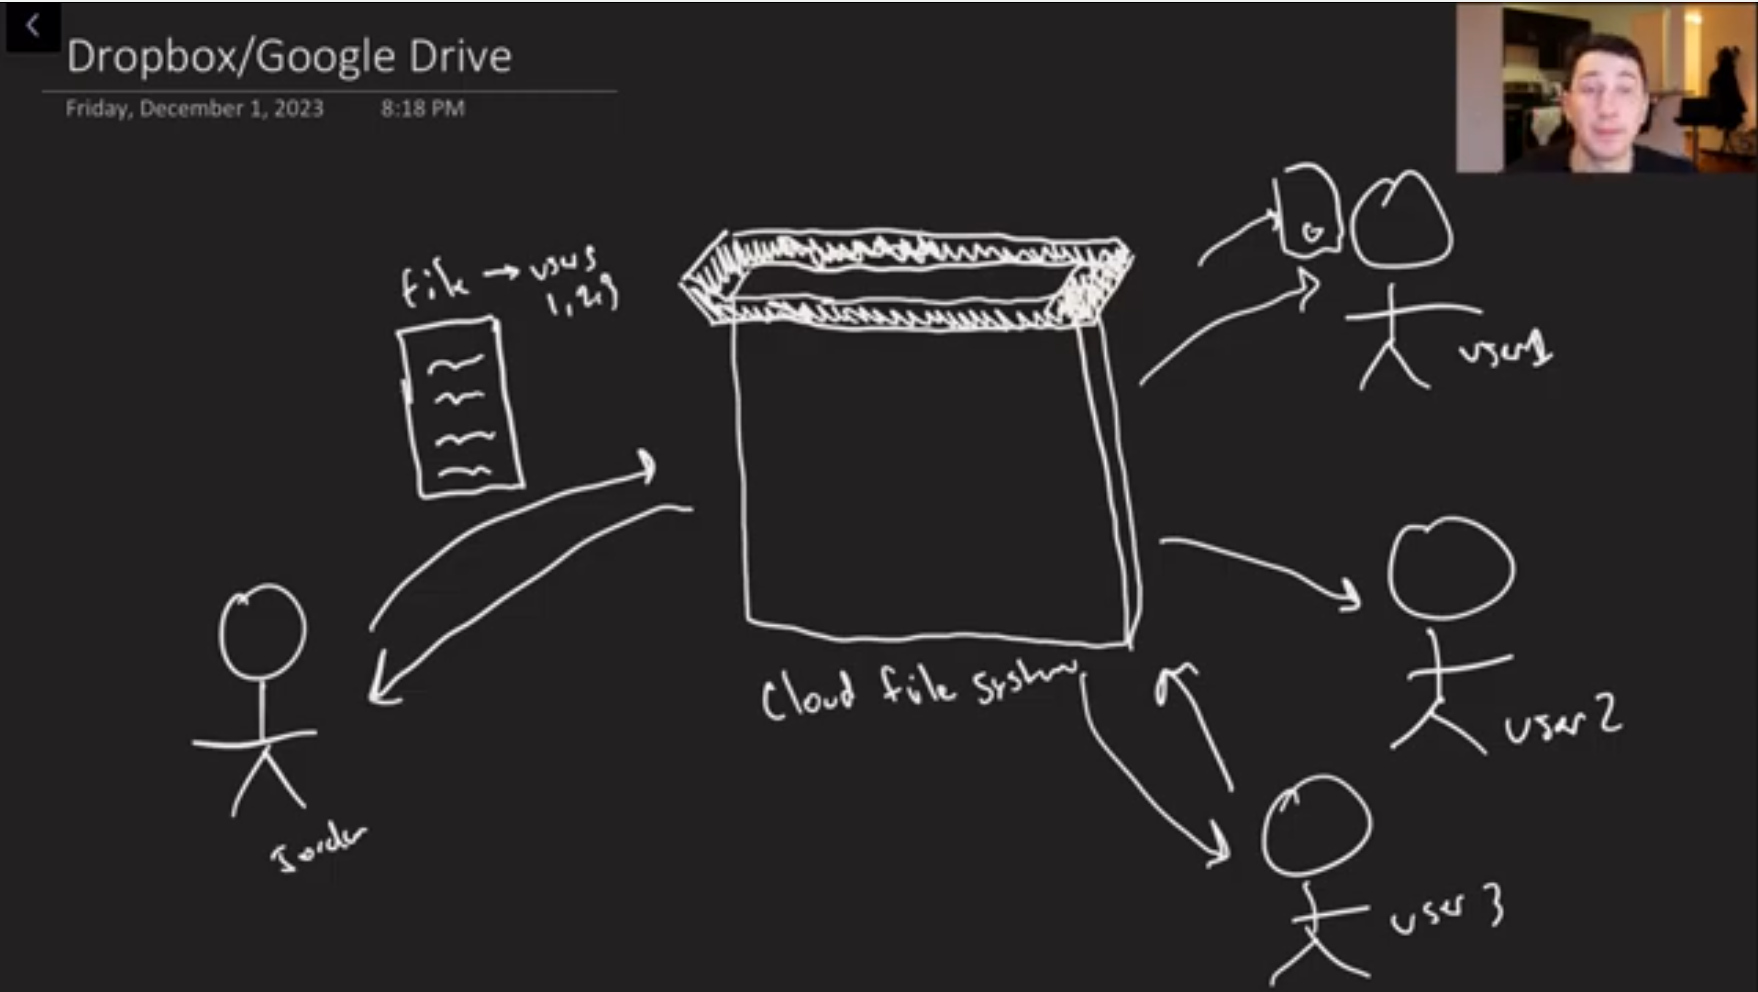 Dropbox/Google Drive
Friday, December 1, 2023 8:18 PM
file → users
1, 2, 3
user 1
Cloud file system
user 2
Jordan
user 3